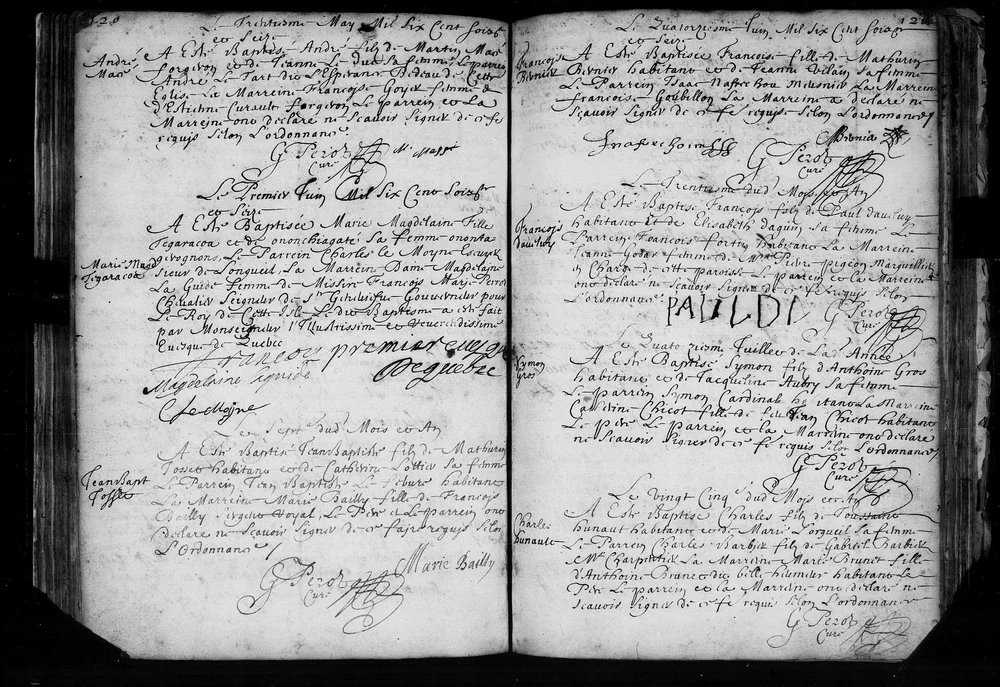 120
Le Trentiesme May Mil Six Cent Soixte
et Seize
André
A Esté Baptisé André fils de Martin
forgeron et de Jeanne Le duc sa femme Le parrein
André Le Tart dit L'Esperance Bedeau de Cette
Eglise La Marreine Françoise Goyer femme
d'Estienne forgeron Le parrein et La
Marreine ont declaré ne Scavoir Signer de ce
requis Selon L'ordonnance
G Perot
Curé
Le Premier Juin Mil Six Cent Soixte
et Seize
Marie Magd
Tegaracoa
A Esté Baptisée Marie Magdelaine Fille
Tegaracoa et de ononchiagate Sa femme
Le Parrein Charles Le Moyne Escuyer
Sieur de Longueil La Marreine Dame Magdelaine
La Guide femme de Messire François Marie Perrot
Chevalier Seigneur de Ste Geneviefve Gouverneur pour
Le Roy de Cette Isle Le dit Baptisme a esté fait
par Monseigneur l'Illustrissime et Reverendissime
Evesque de Quebec
françois premier evesque
De quebec
Magdelaine laguide
C Le Moyne
Le Sept dud Mois et An
Jean Bapt
A Esté Baptisé Jean Baptiste fils de Mathurin
habitant et de Catherine Lottier Sa femme
Le Parrein Jean Baptiste Le febure habitant
La Marreine Marie Bailly fille de François
Bailly Sergent Royal, Le Pere et Le parrein ont
declaré ne Scavoir Signer de ce faire requis Selon
L'ordonnance
Marie Bailly
G Perot
Curé
121
Le Quatorziesme Juin Mil Six Cent Soixte
et Seize
Françoise
A Esté Baptisée Françoise fille de Mathurin
habitant et de Jeanne Vilain Sa femme
Le Parrein Isaac Nafrechou Meusnier La Marreine
françoise Goubillon La Marreine a declaré ne
Scavoir Signer de ce fe requise Selon L'ordonnance
Inafrechoun
G Perot
Curé
Le Trentiesme dud Mois et An
François
A Esté Baptisé François fils de Paul
habitant Et de Elisabeth daguin sa femme Le
Parrein François fortin habitant La Marreine
Jeanne Godar femme de Pierre pigeon Marguillier
en Charge de cette paroisse Le parrein et La Marreine
ont declaré ne Scavoir Signer de ce fe requis Selon
L'ordonnance
PAUL DI
G Perot
Curé
Le Quatorziesme Juillet de La Année
Symon
Gros
A Esté Baptisé Symon fils d'Anthoine Gros
habitant et de Jacqueline Aubry Sa femme
Le parrein Symon Cardinal habitant La Marreine
Catherine Chicot fille de feu Jean Chicot habitant
Le Pere Le parrein et La Marreine ont declaré
ne Scavoir Signer de ce fe requis Selon L'ordonnance
G Perot
Curé
Le Vingt Cinq dud Mois et An
Charles
hunault
A Esté Baptisé Charles fils de Toussaint
hunaut habitant et de Marie Lorgueil Sa femme
Le Parrein Charles Barbier fils de Gabriel Barbier
Me Charpentier La Marreine Marie Brunet fille
d'Anthoine Brunet dit belle humeur habitant Le
Pere Le parrein et La Marreine ont declaré ne
Scavoir Signer de ce fe requis Selon L'ordonnance
G Perot
Curé